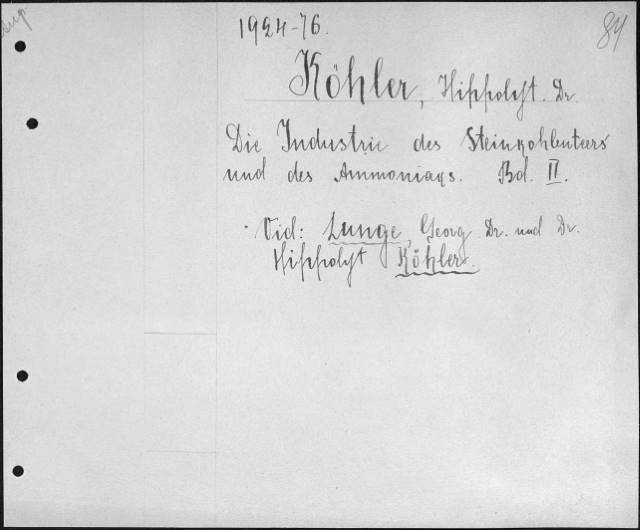 1924-76.
84
Köhler, Hippolyt. Dr.
Die Industrie des Steinkohlenteers
und des Ammoniaqs. Bd. II.
Vid: Lunge, Georg Dr. und Dr.
Hippolyt Köhler.